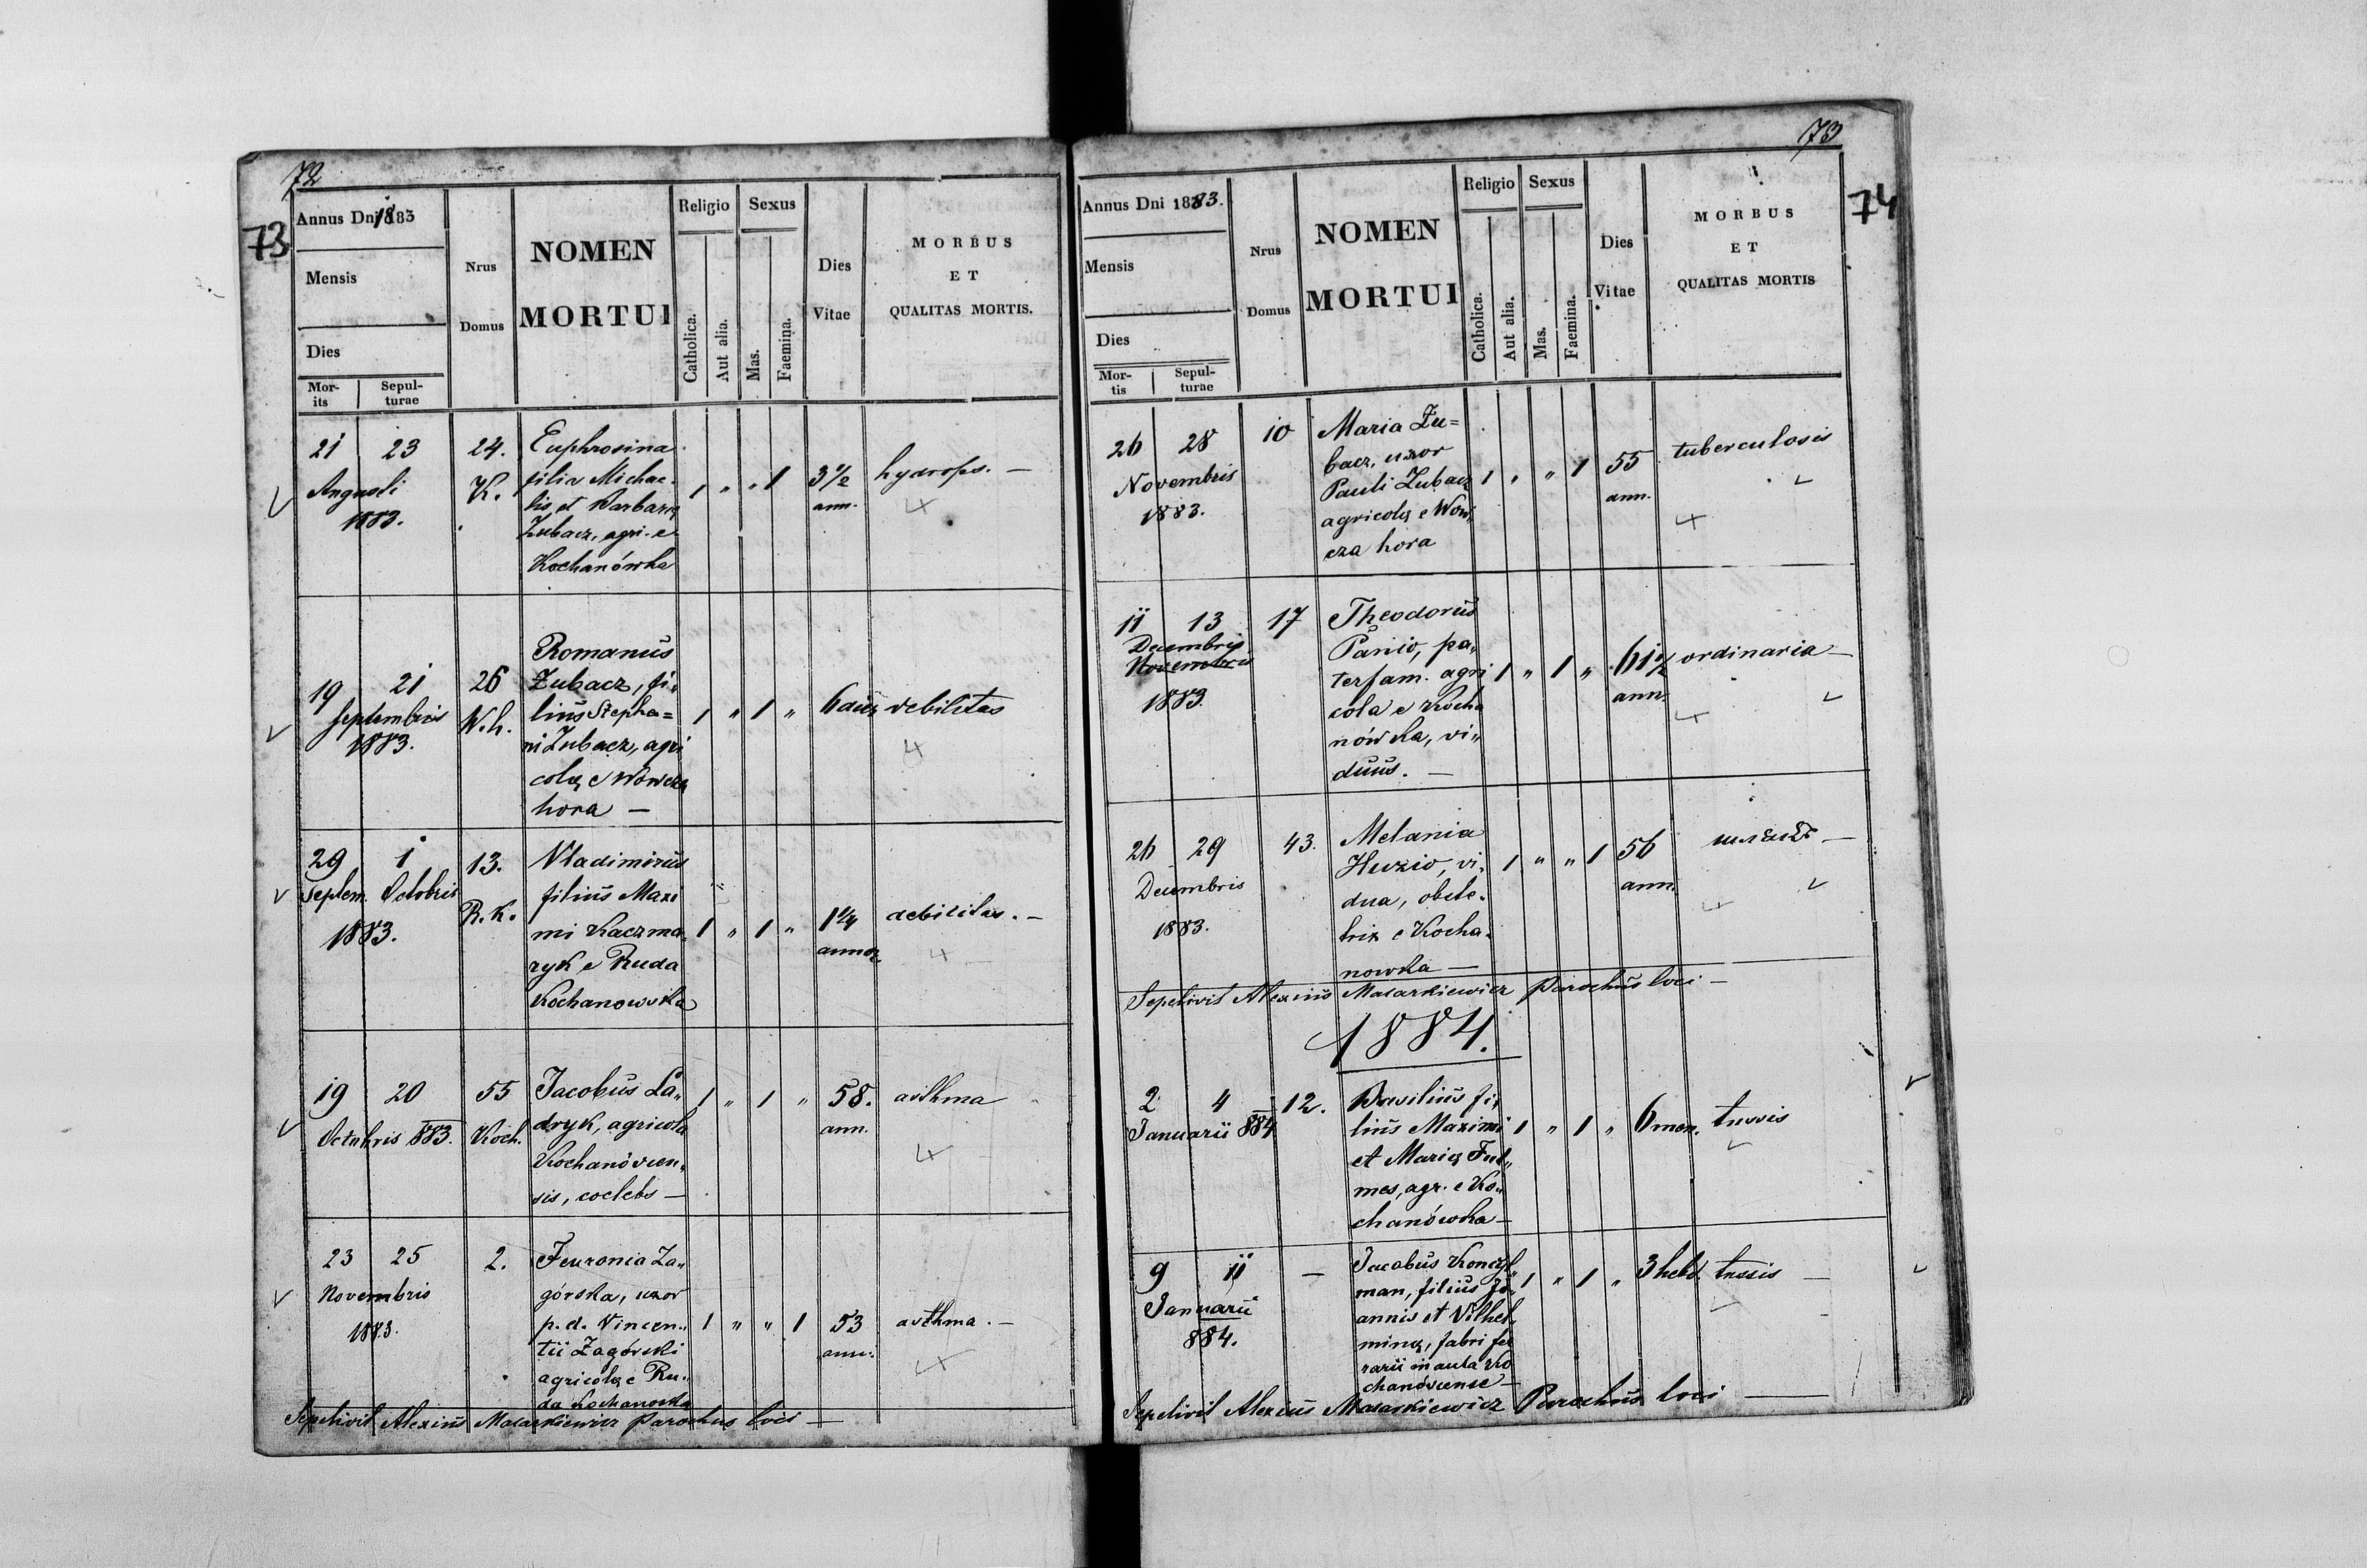 72
73
Annus Dni 1883
Mensis
Dies
Mor-
its
Sepul-
turae
Nrus
Domus
NOMEN
MORTUI
Religio
Catholica.
Aut alia.
Sexus
Mas.
Faemina.
Dies
Vitae
MORBUS
ET
QUALITAS MORTIS.
21 23
Augusti
1883.
24.
K.
Euphrosina
filia Michae-
lis et Barbarę
Zubacz, agri. e
Kochanówka
1 " " 1
3 1/2
ann.
hydrops. —
19 21
Septembris
1883.
26
W. h.
Romanus
Zubacz, fi„
lius Stepha=
ni Zubacz, agri
colę e Wowcza
hora —
1 " 1 "
6 dies
debilitas
29 1
Septem. Octobris
1883.
13.
R. K.
Vladimirus
filius Maxi
mi Kaczma„
ryk e Ruda
Kochanowska
1 " 1 "
1 1/4
annor
debilitas. —
19 20
Octobris 883.
55
Koch.
Jacobus Ła„
dryk, agricola
Kochanóvien„
sis, coelebs —
1 " 1 "
58.
ann.
asthma
23 25
Novembris
1883.
2.
Feuronia Za„
górska, uxor
p. d. Vincen„
tii Zagórski
agricolę e Ru„
da Kochanoska
1 " " 1
53
ann.
asthma. —
Sepelivit Alexius Masarkiewicz parochus loci —
73
74
Annus Dni 1883.
Mensis
Dies
Mor-
tis
Sepul-
turae
Nrus
Domus
NOMEN
MORTUI
Religio
Catholica.
Aut alia.
Sexus
Mas.
Faemina.
Dies
Vitae
MORBUS
ET
QUALITAS MORTIS
26 28
Novembris
1883.
10
Maria Zu=
bacz, uxor
Pauli Zubacz
agricolę e Wow„
cza hora
1 " " 1
55
ann.
tuberculosis
11 13
Decembris
Novembris
1883.
17
Theodorus
Panio, pa„
terfam. agri
cola e Kocha
nówka, vi„
duus. —
1 " 1 "
61 1/2
ann.
ordinaria —
26 29
Decembris
1883.
43.
Melania
Huzio, vi„
dua, obste„
trix e Kocha„
nowka —
1 " " 1
56
ann.
Sepelivit Alexius Masarkiewicz parochus loci —
1884.
2 4
Januarii 884
12.
Basilius fi„
lius Maximi
et Marię Ful„
mes, agr. e Ko„
chanówka —
1 " 1 "
6 men.
tussis
9 11
Januarii
884.
—
Jacobus
man, filius Jo„
annis et Vilhel„
minę, fabri fer
rarii in aula Ko
chanóviense —
1 " 1 "
3 hebd.
tussis —
Sepelivit Alexius Masarkiewicz Parochus loci —